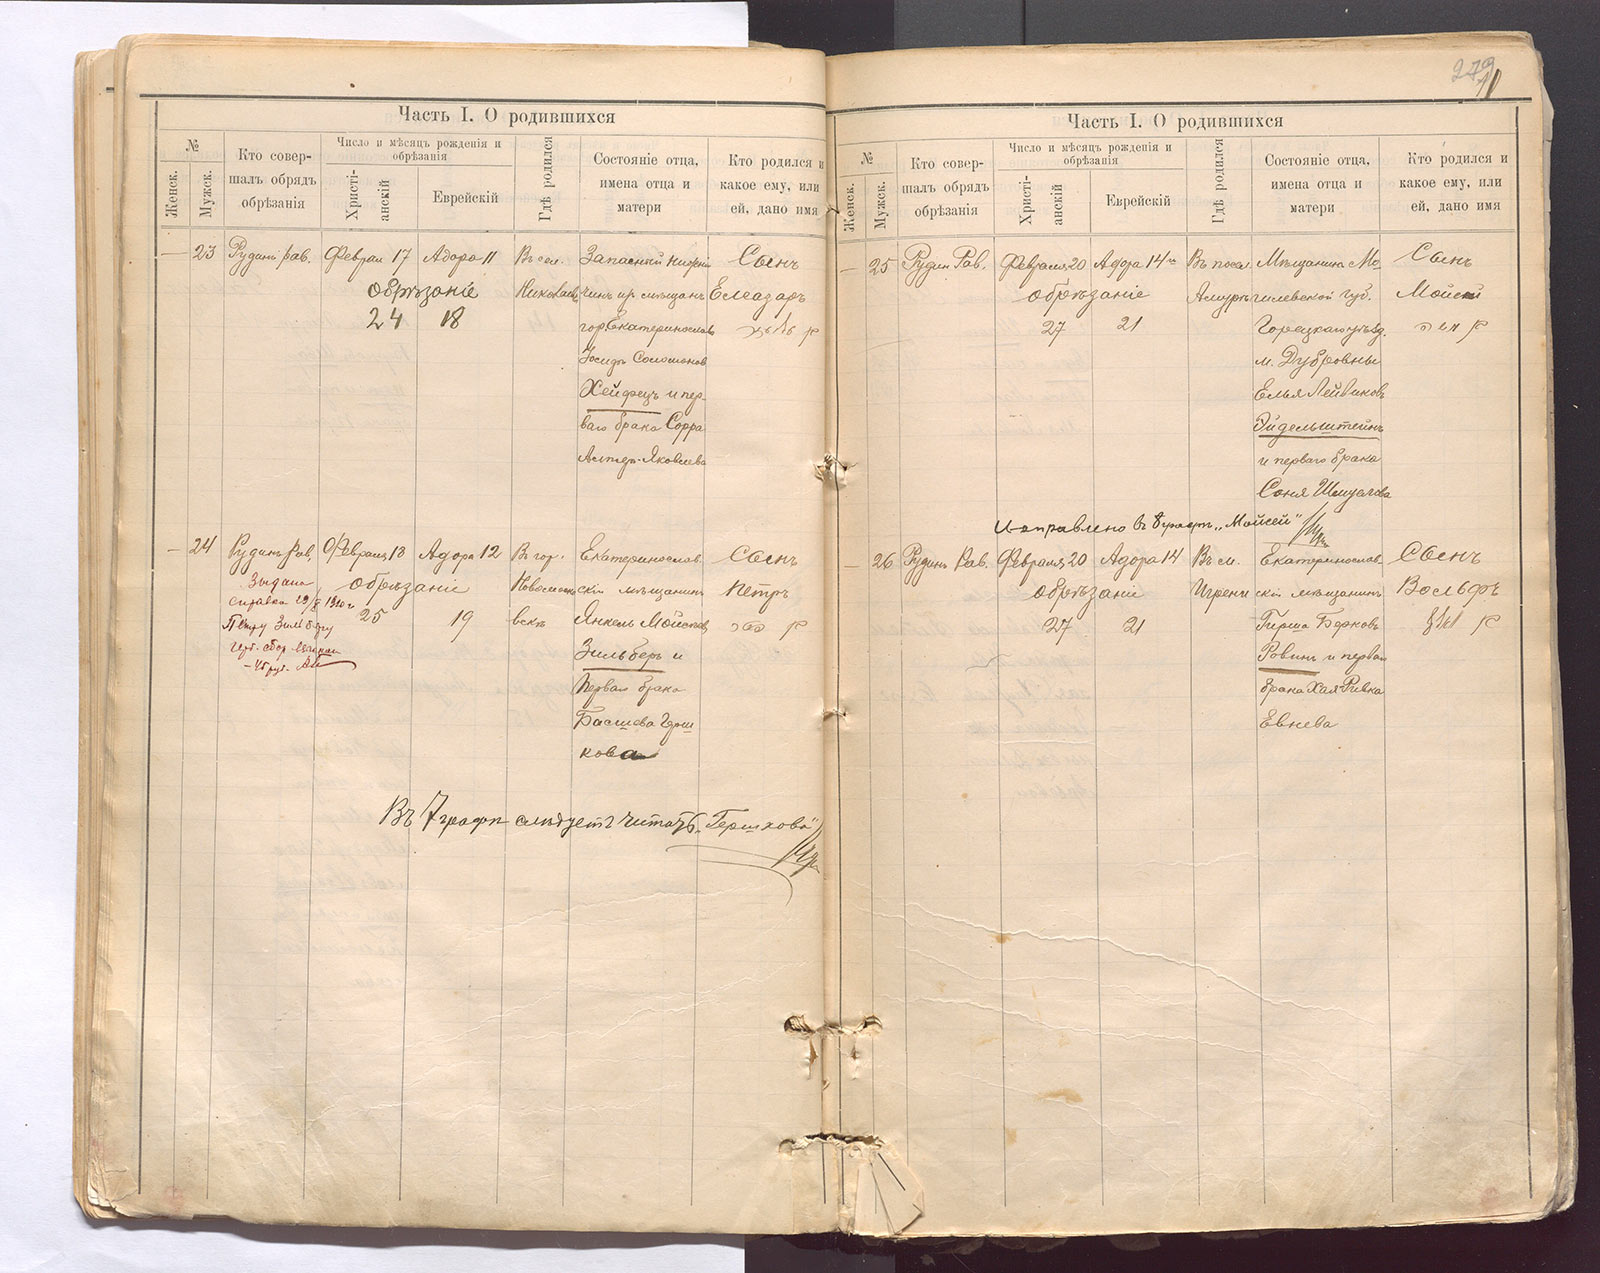 279
11
Часть I. О родившихся
№
Женск.
Мужск.
Кто совер-
шалъ обрядъ
обрѣзанія
Число и мѣсяцъ рожденія и
обрѣзанія
Христі-
анскій
Еврейскій
Гдѣ родился
Состояніе отца,
имена отца и
матери
Кто родился и
какое ему, или
ей, дано имя
— 23 Рудинъ Рав. Феврал 17 Адара 11 Въ сел. Запасный нижній Сынъ
обрѣзаніе чинъ мѣщанъ Елеазаръ
24 18 гор. Екатеринослав
Іосифъ Соломонов
Хейфецъ и пер-
ваго брака Сорра
Яковлева
— 24 Рудинъ Рав. Февраля 18 Адара 12 Въ гор. Екатеринослав. Сынъ
обрѣзаніе Новомоск скій мѣщанинъ Петръ
25 19 вскъ Янкель Мойсеев
Зильберъ и
первая брака
Гдрш
кова
Выдана
справка 29/X 1910 г.
Петру Зильберу
Въ 7 графѣ слѣдуетъ читать „Гершкова“
Часть I. О родившихся
№
Женск.
Мужск.
Кто совер-
шалъ обрядъ
обрѣзанія
Число и мѣсяцъ рожденія и
обрѣзанія
Христі-
анскій
Еврейскій
Гдѣ родился
Состояніе отца,
имена отца и
матери
Кто родился и
какое ему, или
ей, дано имя
— 25 Рудин Рав. Февраля 20 Адара 14 Въ посел. Мѣщанинъ Мо- Сынъ
обрѣзаніе Амуръ гилевской губ.
27 21 Горецкаго уѣзд.
м. Дубровны
Елья Лейвиковъ
Эйдельштейнъ
и перваго брака
Соня Шмуелова
Исправлено въ 8 графѣ „Мойсей“
— 26 Рудинъ Рав. Февраля 20 Адара 14 Въ м. Екатеринослав. Сынъ
обрѣзаніе Игрени скій мѣщанинъ Вольфъ
27 21 Гирша Берковъ
Ровинъ и первая
брака Хая-Ривка
Евнева